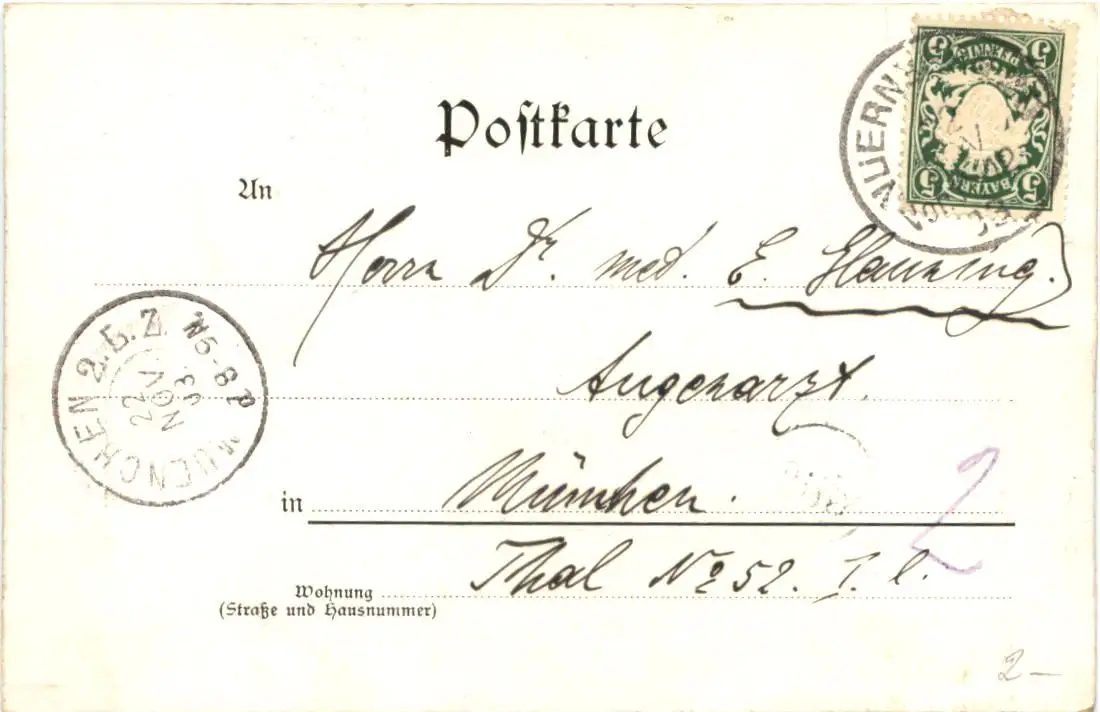 Postkarte
5 5
PFENNIG
BAYERN
5 5
NUERN
An
Herrn Dr. med. E.
Augenarzt.
MUENCHEN 2.B.Z. N5-8
22
NOV
in München.
2
Thal No 52. I. l.
Wohnung
(Straße und Hausnummer)
2 —